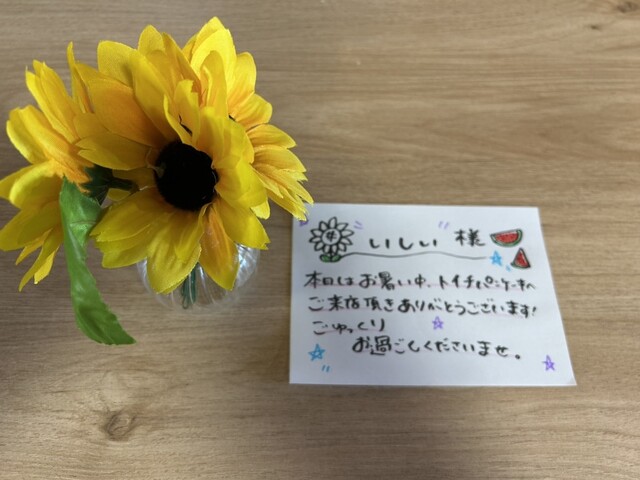 いしい 様
本日はお暑い中、トイチパンケーキへ
ご来店頂きありがとうございます!
ごゆっくり
お過ごしくださいませ。